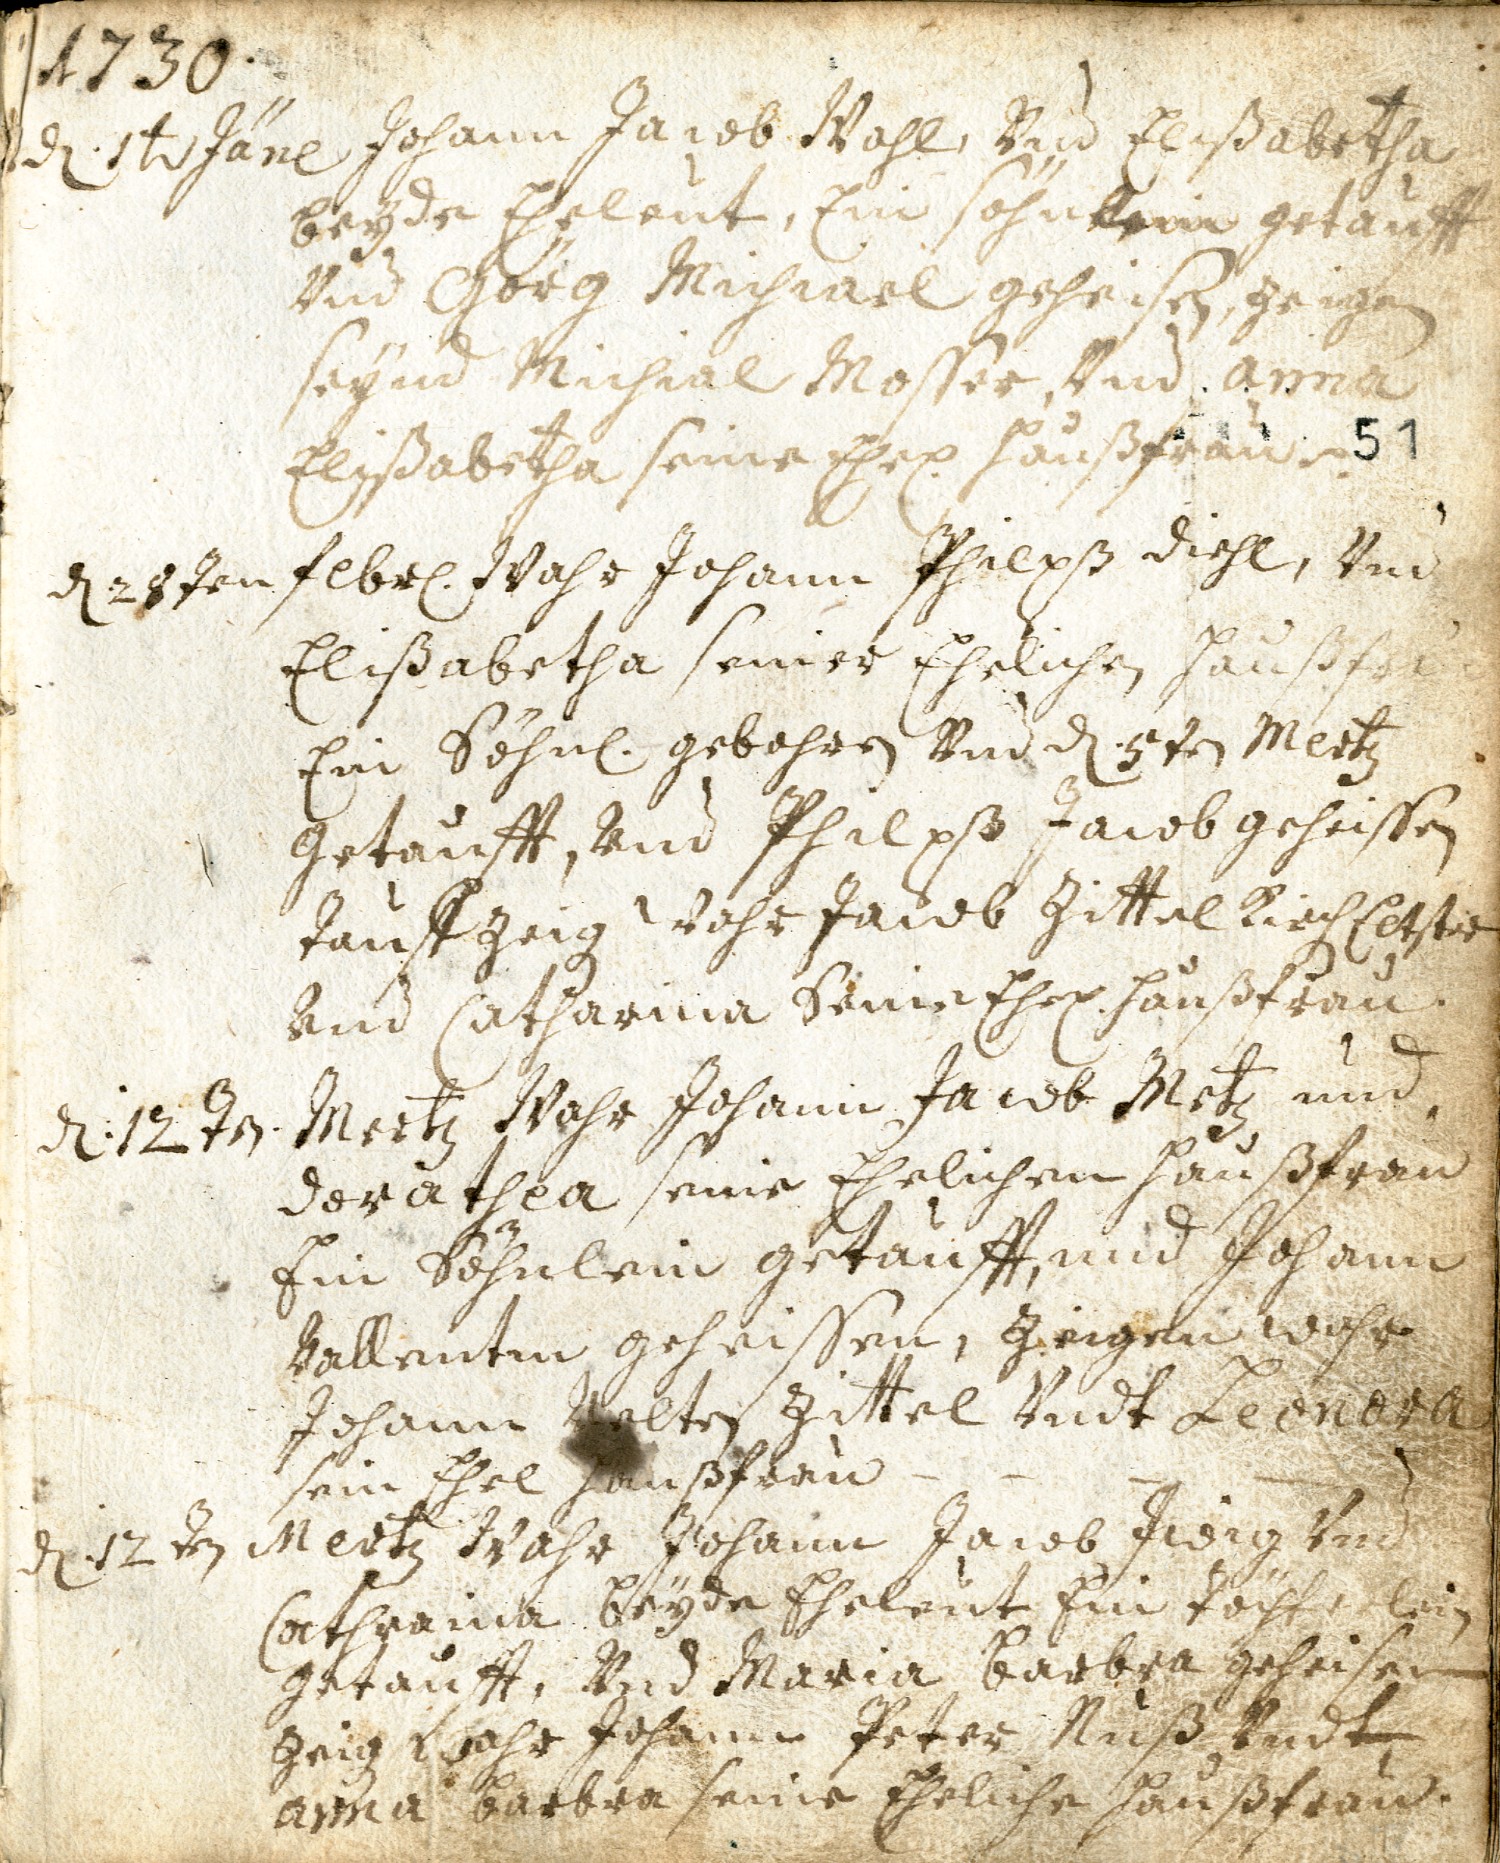 1730.
d. 1t Jäne Johann Jacob Wahl, Und Elißabetha
beyde Eheleut, Ein söhnlein getaufft
Und Görg Michael geheisen, Zeigen
seynd Michial Mosser, Und anna
Elißabetha seine Ehel. haußfrau 51
d 28ten febrl. Wahr Johann Philpß diehl, Und
Elißabetha seiner Ehelichen haußfrau
Ein Söhnl. gebohren Und d. 5ten Mertz
getaufft, Und Philpß Jacob geheissen
Tauff Zeig Wahr Jacob Zittel Kirch Eltster
Und Catharina Seine Ehel. haußfrau.
d. 12 Ten Mertz Wahr Johann Jacob Metz und
dorathea seine Ehelichen haußfrau
Ein Söhnlein getaufft, und Johann
Vallentin geheissen, Zeigen wahr
Johann Velten Zittel Undt Leonora
sein Ehel haußfrau - - - -
d. 12 ten Mertz Wahr Johann Jacob Und
Cathraina beyde Eheleut Ein töchterlein
getaufft, Und Maria barbra geheisen
Zeig Wahr Johann Peter Nuß Undt
anna barbra seine Eheliche haußfrau.